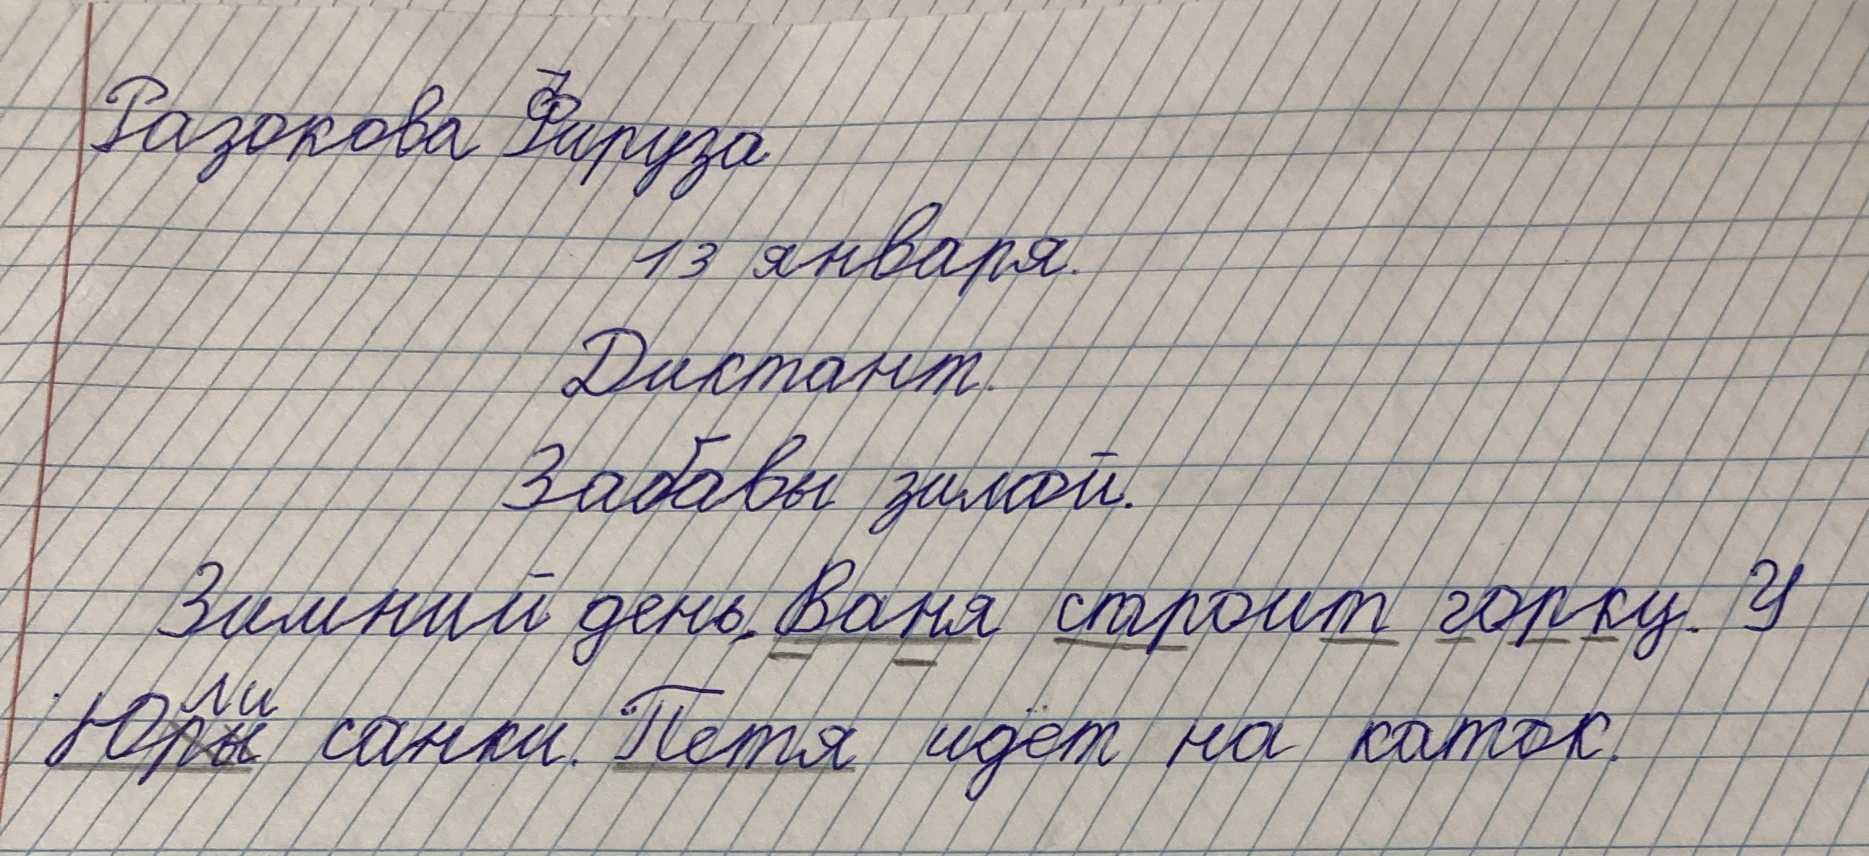 Разокова Фируза
13 января.
Диктант.
Забавы зимой.
Зимний день. Ваня строит горку. У
Юли санки. Петя идёт на каток.